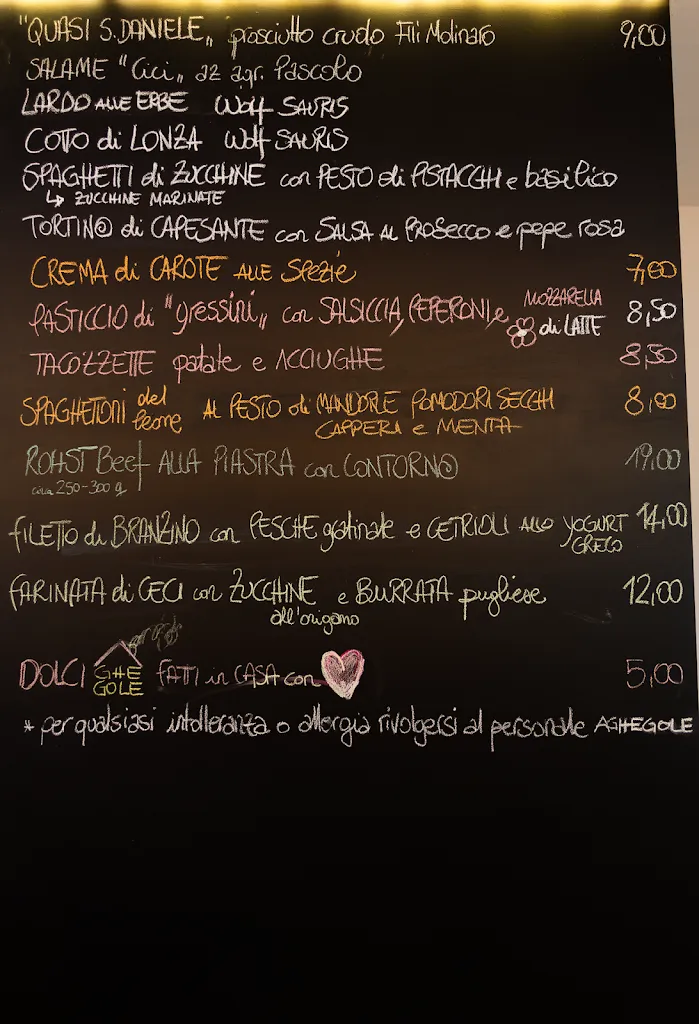 "QUASI S.DANIELE„ prosciutto crudo F.lli Molinaro 9,00
SALAME "Cici„ az agr. Pascolo
LARDO ALLE ERBE Wolf SAURIS
COTTO di LONZA Wolf SAURIS
SPAGHETTI di ZUCCHINE con PESTO di PISTACCHI e basilico
↳ ZUCCHINE MARINATE
TORTINO di CAPESANTE con SALSA AL PROSECCO e pepe rosa
CREMA di CAROTE ALLE SPEZIE 7,00
PASTICCIO di "gressini„ con SALSICCIA, PEPERONI e MOZZARELLA di LATTE 8,50
TACOZZETTE patate e ACCIUGHE 8,50
SPAGHETTONI del leone AL PESTO di MANDORLE POMODORI SECCHI 8,00
CAPPERI e MENTA
ROAST Beef ALLA PIASTRA con CONTORNO 19,00
circa 250-300 g
FILETTO di BRANZINO con PESCHE gratinate e CETRIOLI ALLO YOGURT GRECO 14,00
FARINATA di CECI con ZUCCHINE e BURRATA pugliese 12,00
all'origano
DOLCI GHE GOLE FATTI in CASA con 5,00
* per qualsiasi intolleranza o allergia rivolgersi al personale AGHEGOLE